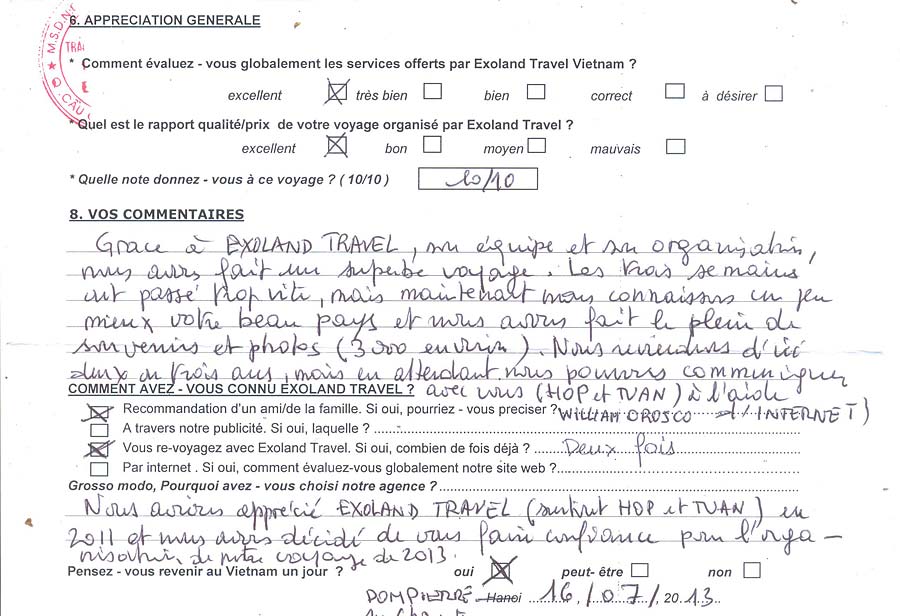 6. APPRECIATION GENERALE
M.S.D.N:
TRA
CẦU
* Comment évaluez - vous globalement les services offerts par Exoland Travel Vietnam ?
excellent très bien bien correct à désirer
*Quel est le rapport qualité/prix de votre voyage organisé par Exoland Travel ?
excellent bon moyen mauvais
* Quelle note donnez - vous à ce voyage ? ( 10/10 ) 10/10
8. VOS COMMENTAIRES
Grace à EXOLAND TRAVEL, son équipe et son organisation,
nous avons fait un superbe voyage. Les trois semaines
ont passé trop vite, mais maintenant nous connaissons un peu
mieux votre beau pays et nous avons fait le plein de
souvenirs et photos (3 000 environ). Nous reviendrons d'ici
deux ou trois ans, mais en attendant nous pouvons communiquer
COMMENT AVEZ - VOUS CONNU EXOLAND TRAVEL ? avec vous (HOP et TUAN) à l'aide
Recommandation d'un ami/de la famille. Si oui, pourriez - vous préciser ? WILLIAM OROSCO d'INTERNET)
A travers notre publicité. Si oui, laquelle ?
Vous re-voyagez avec Exoland Travel. Si oui, combien de fois déjà ? Deux fois
Par internet . Si oui, comment évaluez-vous globalement notre site web ?
Grosso modo, Pourquoi avez - vous choisi notre agence ?
Nous avions apprécié EXOLAND TRAVEL (surtout HOP et TUAN) en
2011 et nous avons décidé de vous faire confiance pour l'orga-
nisation de notre voyage de 2013.
Pensez - vous revenir au Vietnam un jour ? oui peut- être non
DOMPIERRE Hanoi 16/07/2013